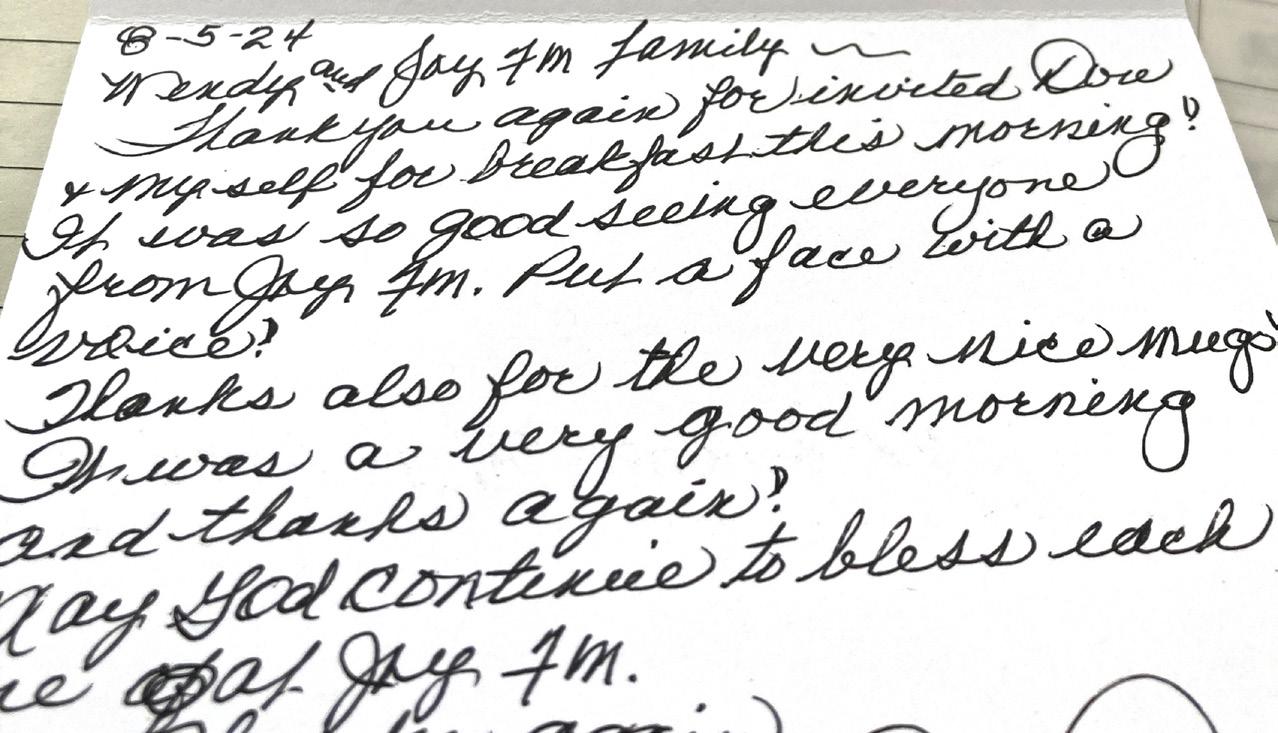 8-5-24
Wendy and Joy FM family ~
Thank you again for invited Dore
& myself for breakfast this morning!
It was so good seeing everyone
from Joy FM. Put a face with a
voice!
Thanks also for the very nice mugs
It was a very good morning
and thanks again!
May God continue to bless each
at Joy FM.
again